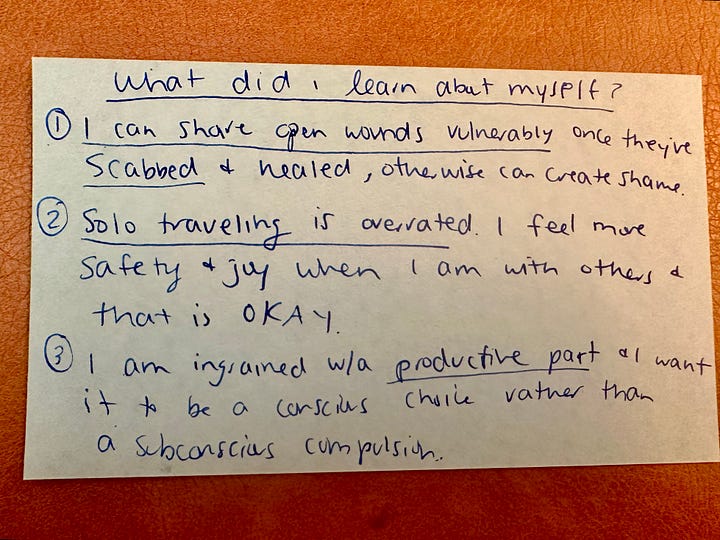 What did i learn about myself?
① I can share open wounds vulnerably once they're
scabbed & healed, otherwise can create shame.
② Solo traveling is overrated. I feel more
safety & joy when I am with others &
that is OKAY.
③ I am ingrained w/a productive part & I want
it to be a conscious choice rather than
a subconscious compulsion.